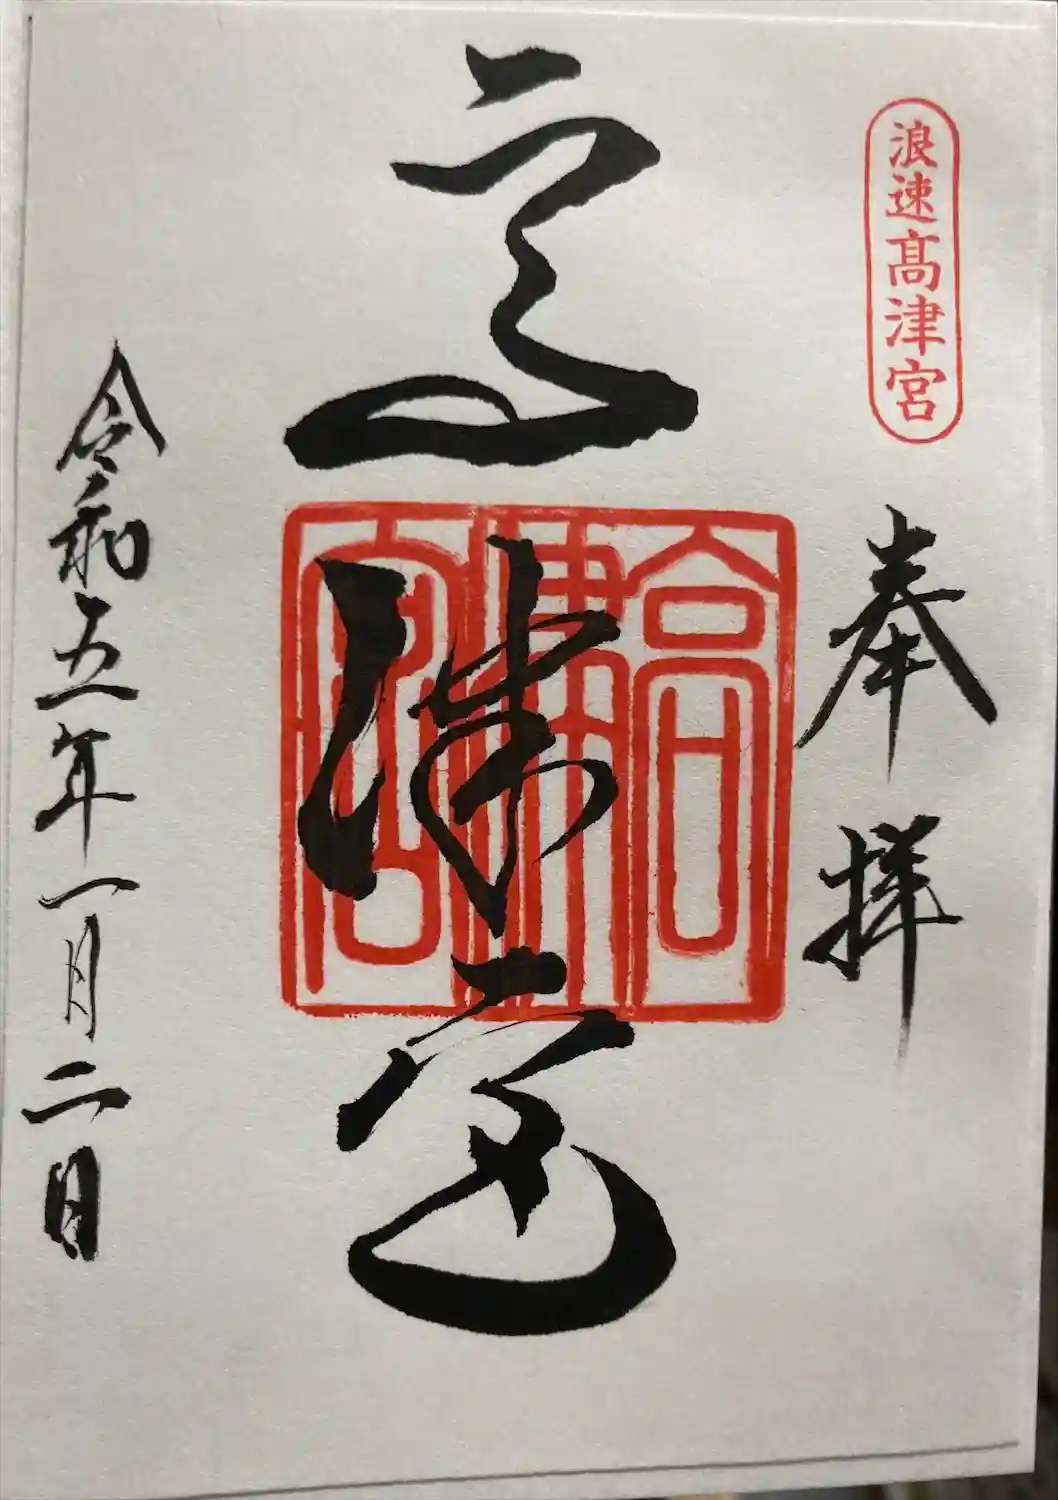 浪速髙津宮
奉拝
高津宮
高津宮
令和五年一月二日